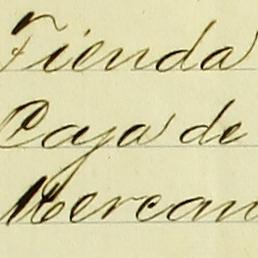 Tienda
Caja de
Mercan